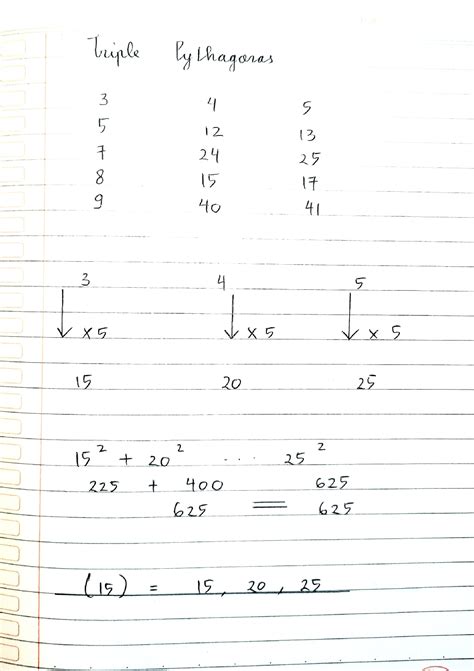 Triple Pythagoras
3 4 5
5 12 13
7 24 25
8 15 17
9 40 41
3 4 5
↓ x 5 ↓ x 5 ↓ x 5
15 20 25
15² + 20² ... 25²
225 + 400 625
625 = 625
(15) = 15, 20, 25